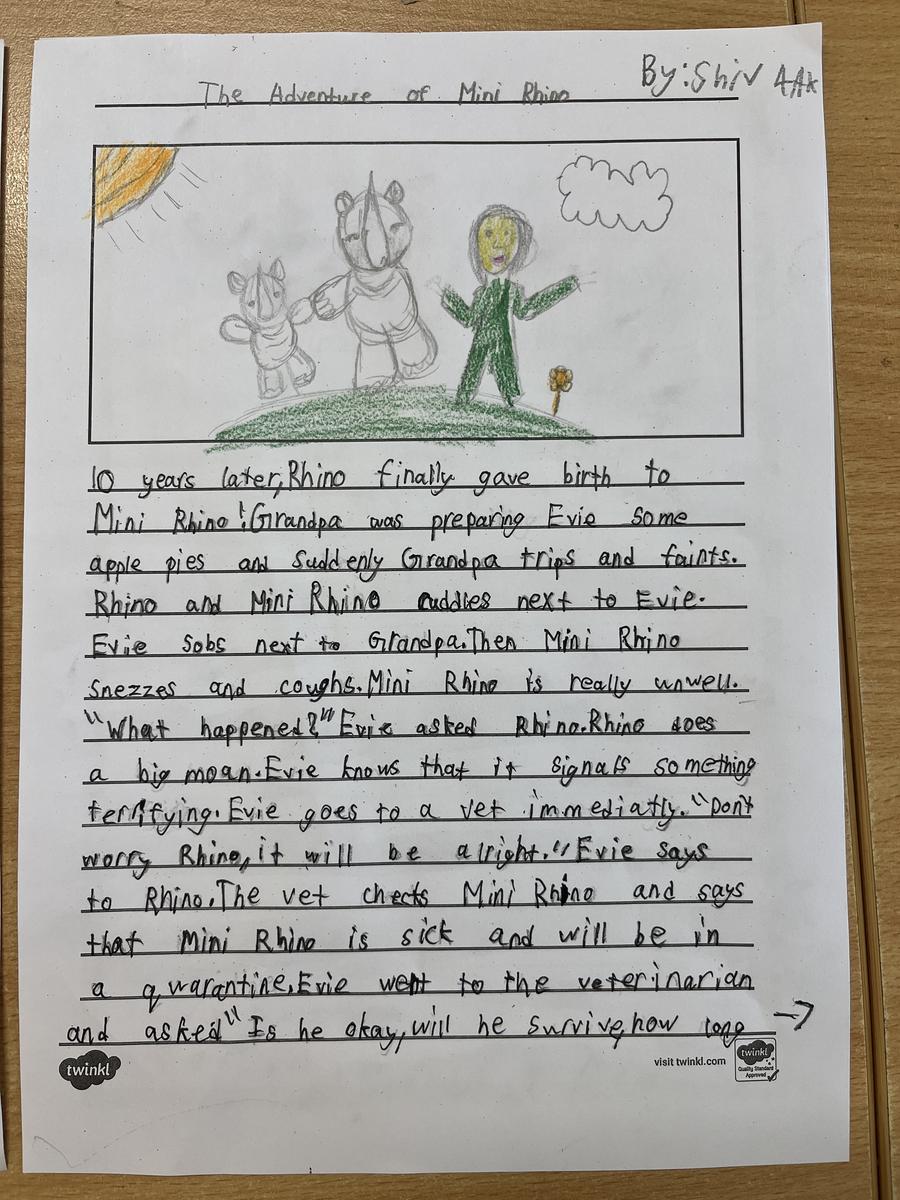 The Adventure of Mini Rhino
By: Shiv 4Ak
10 years later, Rhino finally gave birth to
Mini Rhino! Grandpa was preparing Evie some
apple pies and Suddenly Grandpa trips and faints.
Rhino and Mini Rhino cuddles next to Evie.
Evie sobs next to Grandpa. Then Mini Rhino
snezzes and coughs. Mini Rhino is really unwell.
"What happened?" Evie asked Rhino. Rhino does
a big moan. Evie knows that it signals something
terrifying. Evie goes to a vet immediatly. "Don't
worry Rhino, it will be alright." Evie says
to Rhino. The vet checks Mini Rhino and says
that Mini Rhino is sick and will be in
a quarantine. Evie went to the veterinarian
and asked "Is he okay, will he survive, how long
twinkl
visit twinkl.com
twinkl
Quality Standard
Approved